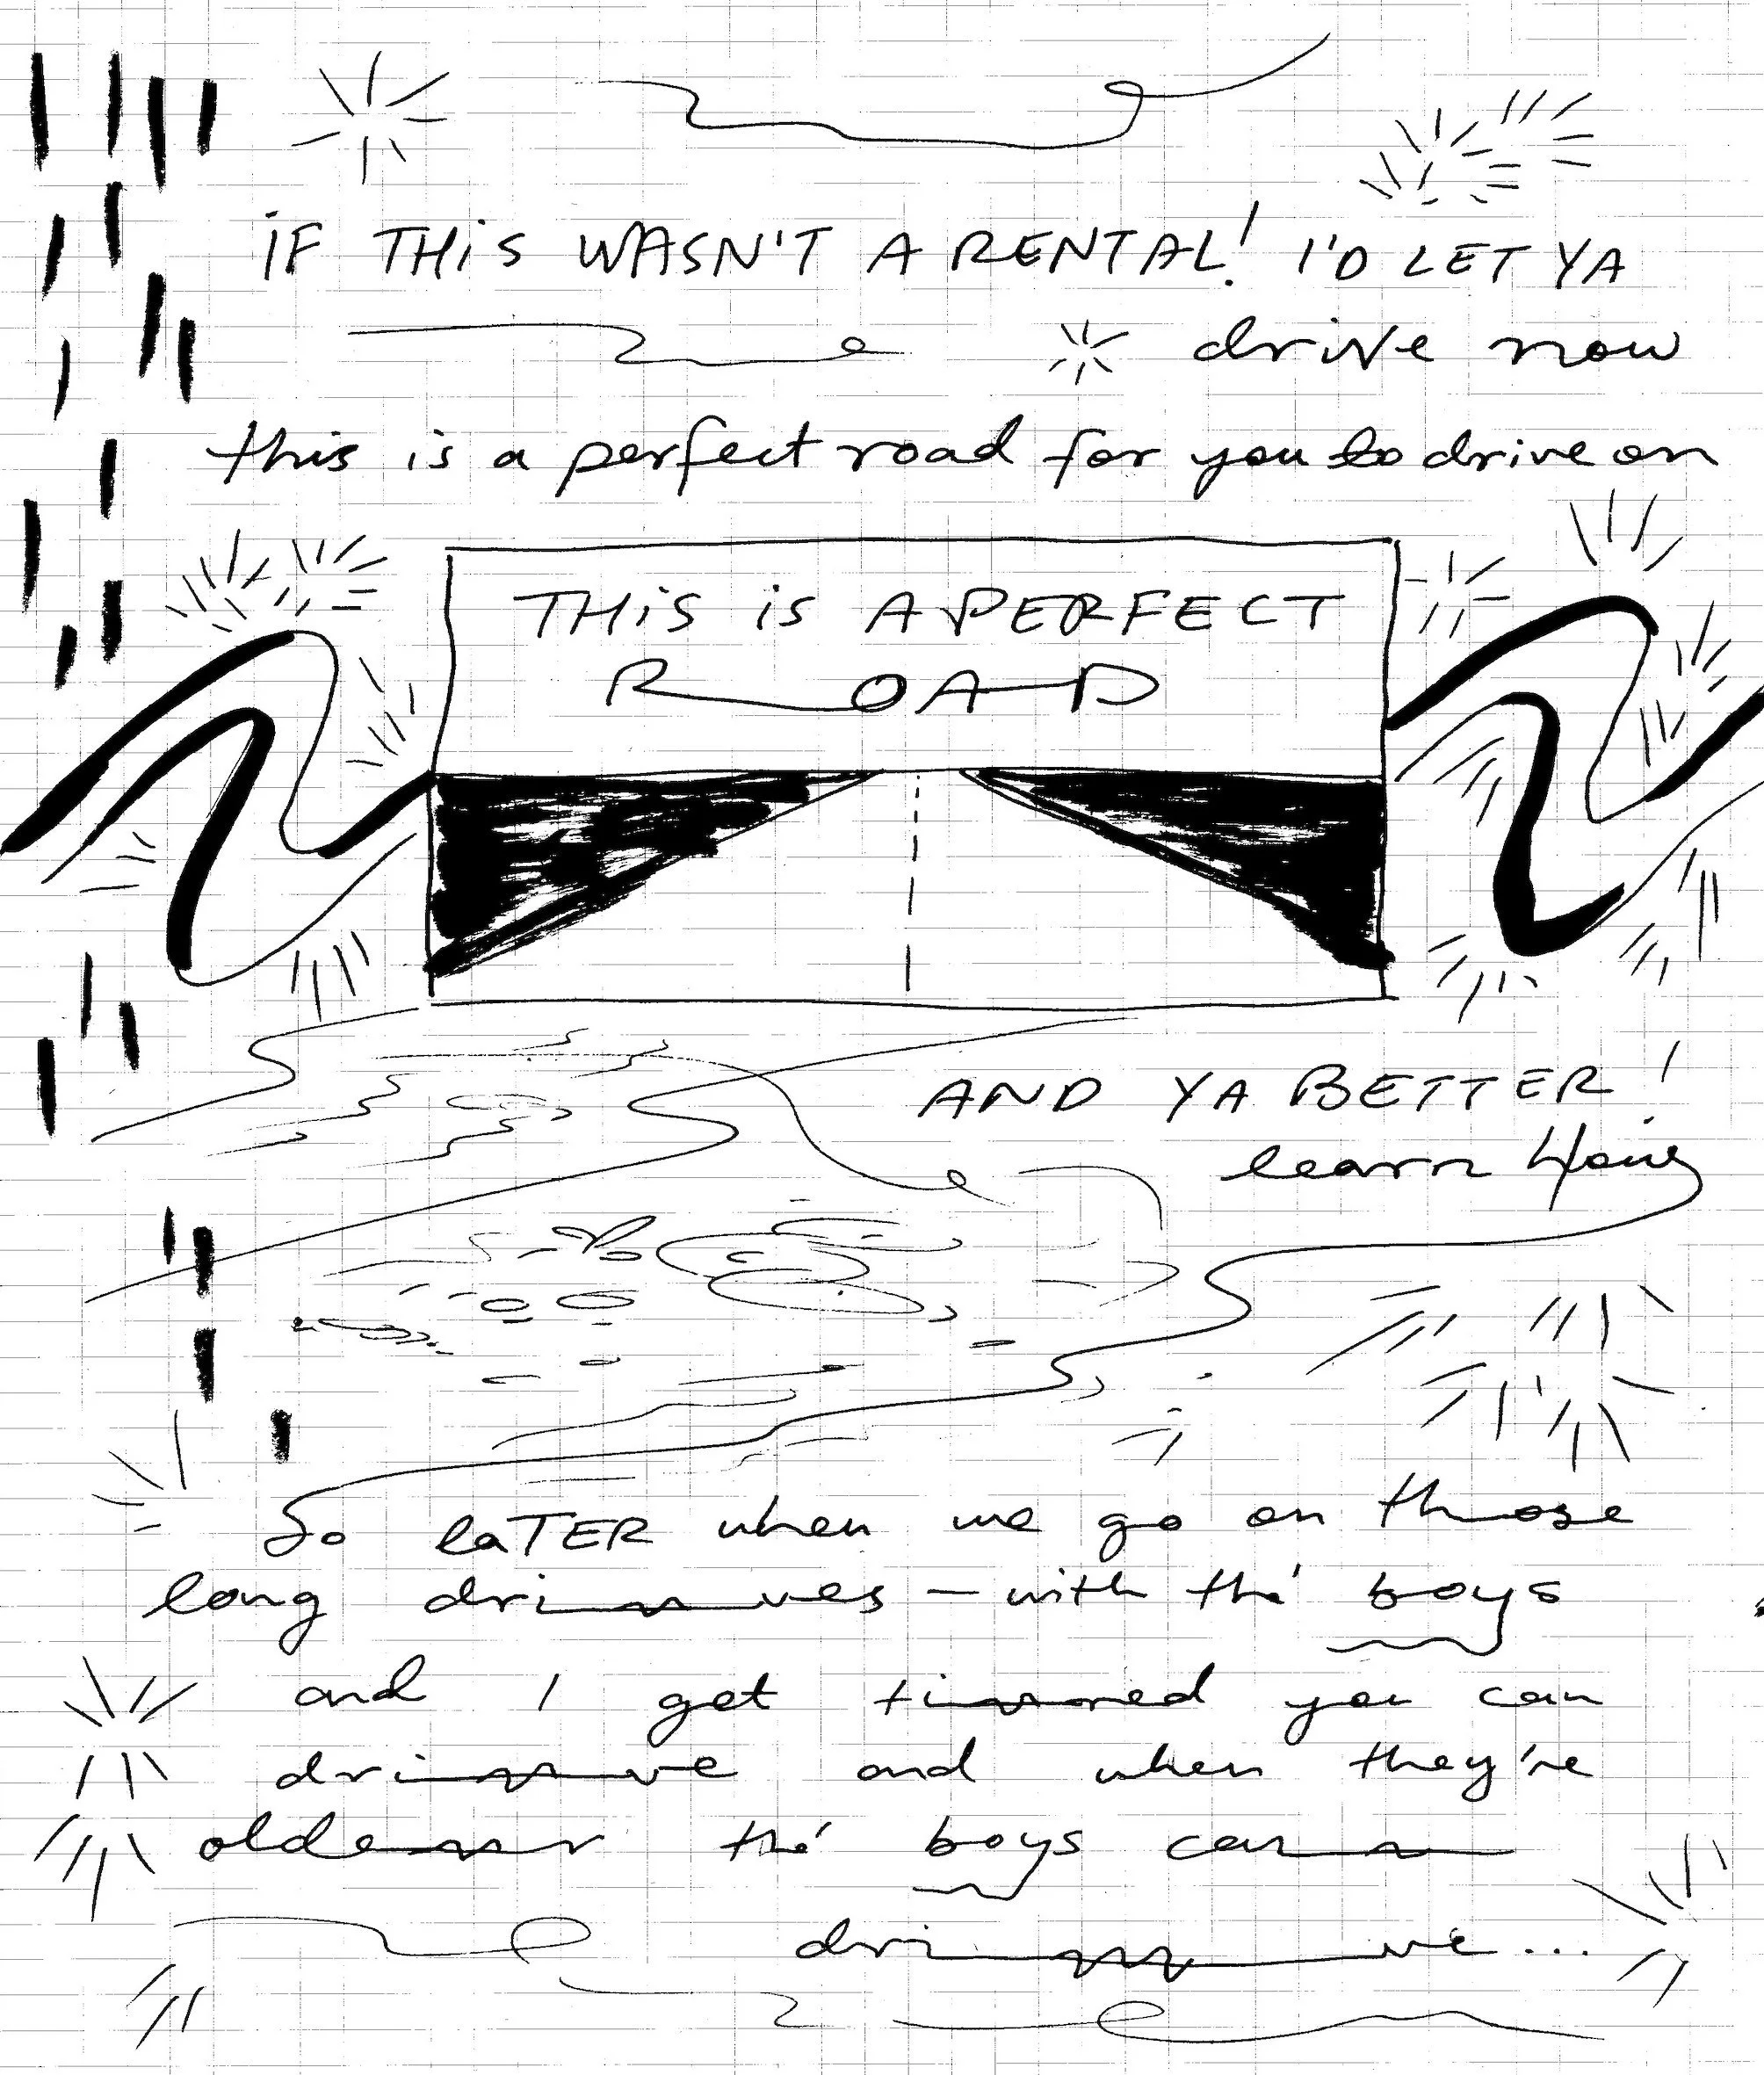 iF THiS WASN'T A RENTAL! I'D LET YA
drive now
this is a perfect road for you to drive on
THiS iS A PERFECT
ROAD
AND YA BETTER!
learn Honey
So laTER when we go on those
long drives – with the boys
and I get tired you can
drive and when they're
older the boys can
drive...